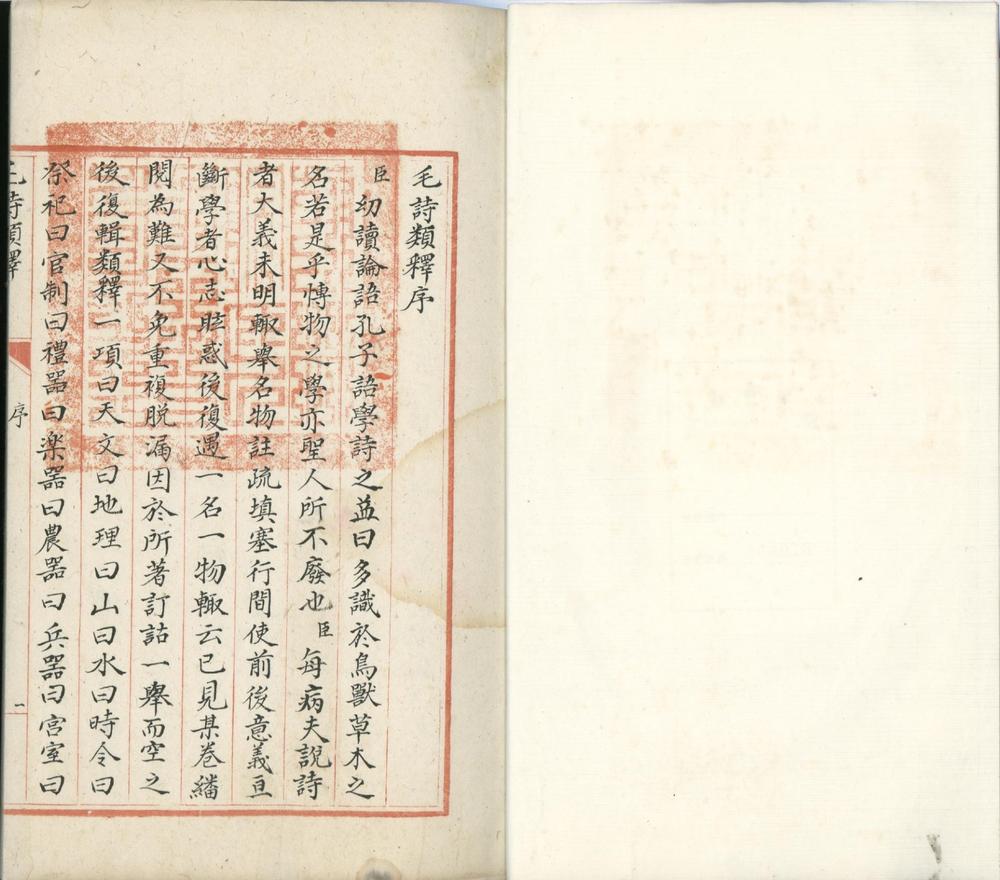 毛詩類釋序
臣幼讀論語孔子語學詩之益曰多識於鳥獸草木之
名若是乎博物之學亦聖人所不廢也臣每病夫說詩
者大義未明輒舉名物註疏填塞行間使前後意義亘
斷學者心志眩惑後復遇一名一物輒云已見某卷繙
閱為難又不免重複脱漏因於所著訂詁一舉而空之
後復輯類釋一項曰天文曰地理曰山曰水曰時令曰
祭祀曰官制曰禮器曰樂器曰農器曰兵器曰宮室曰
毛詩類釋
序
一